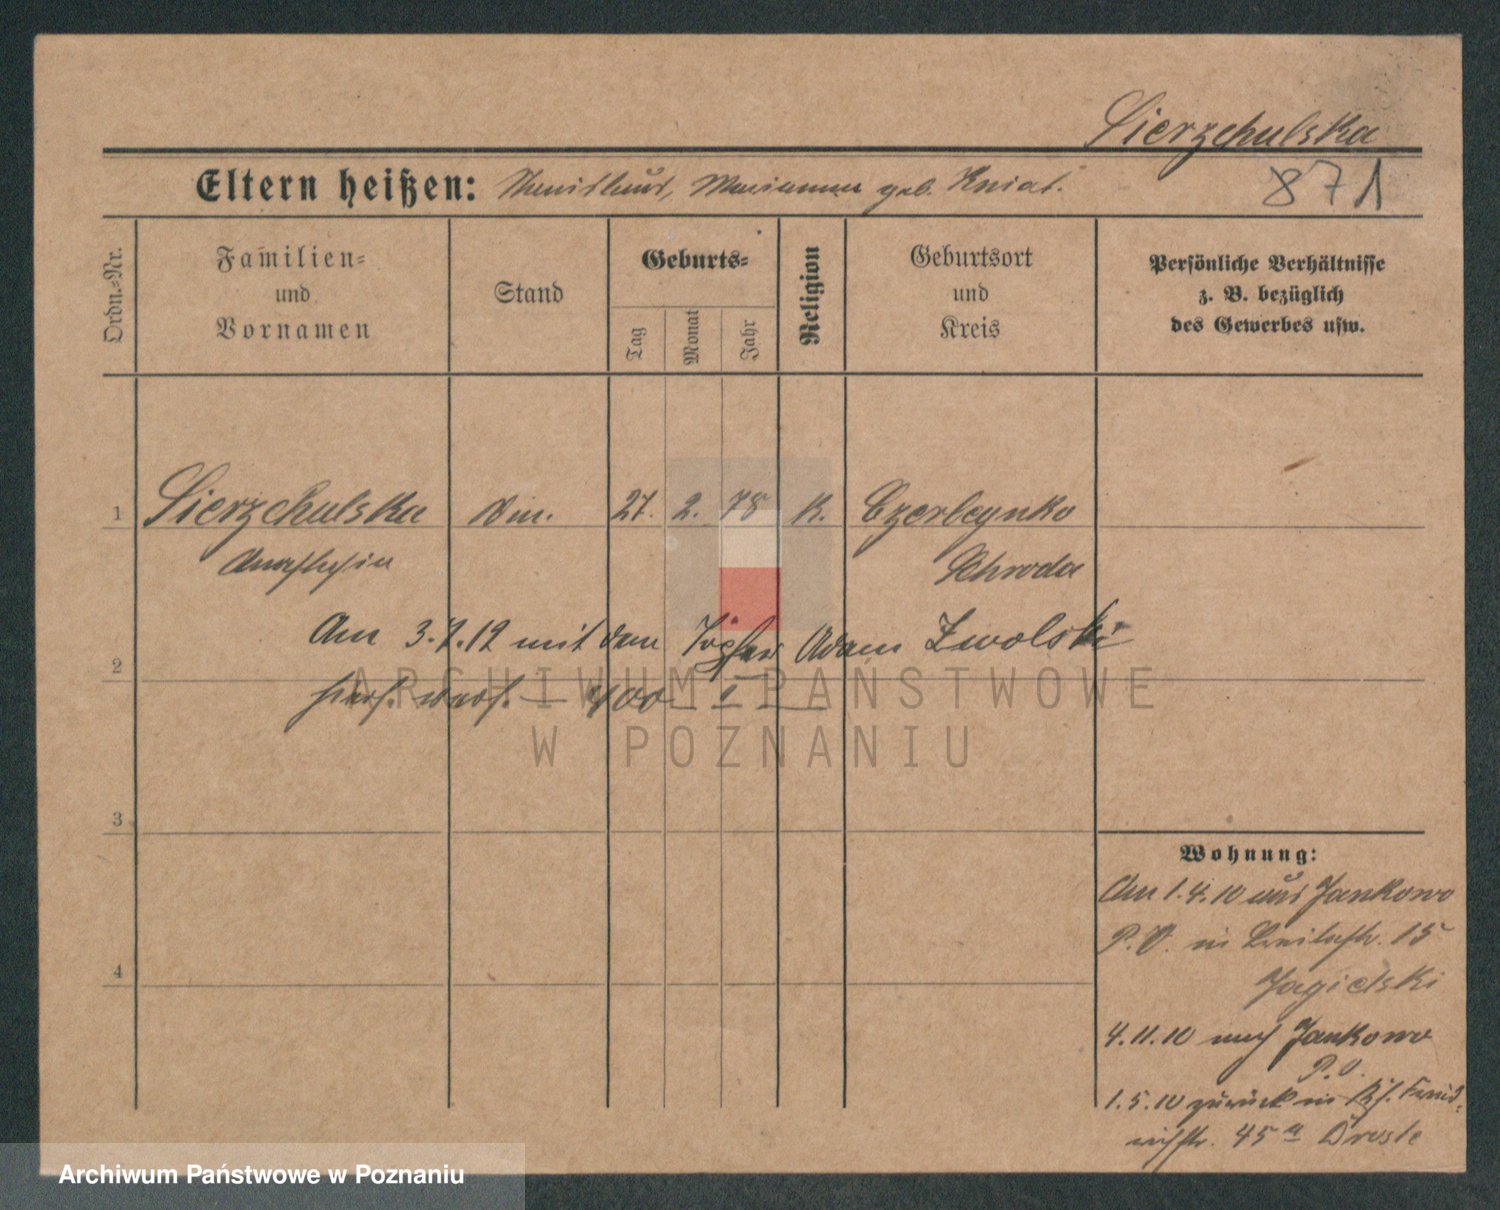 Sierzchulska
871
Eltern heißen: Stanislaus, Marianna geb. Kniat.
Ordn.-Nr.
Familien-
und
Vornamen
Stand
Geburts-
Tag
Monat
Jahr
Religion
Geburtsort
und
Kreis
Persönliche Verhältnisse
z. B. bezüglich
des Gewerbes usw.
1 Sierzchulska 27. 2. 78 K.
Anastasia Schroda
Am 3.7.12 mit dem Töpfer Adam Zwolski
2
400 I
ARCHIWUM PAŃSTWOWE
W POZNANIU
3
4
Wohnung:
Am 1.4.10 aus Jankowo
P.O. in 15
Jagielski
4.11.10 nach Jankowo
P.O.
1.5.10 zurück in
45 a Droste
Archiwum Państwowe w Poznaniu